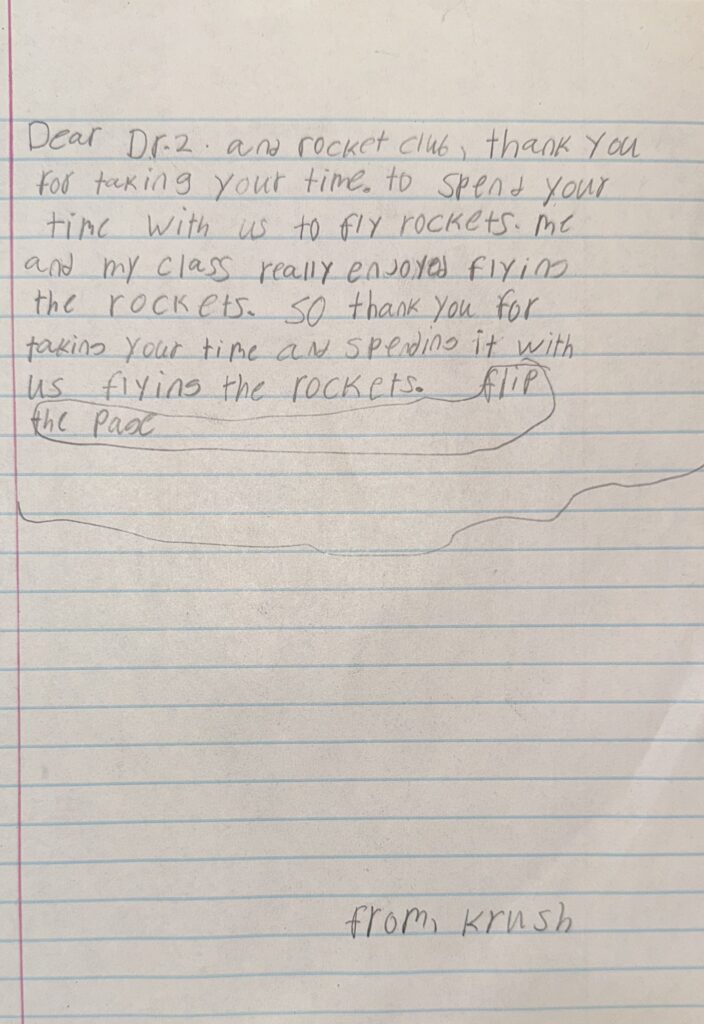 Dear Dr.Z. and rocket club, thank you
for taking your time. to spend your
time with us to fly rockets. me
and my class really enjoyed flying
the rockets. so thank you for
taking your time and spending it with
us flying the rockets. flip
the page
from, Krush